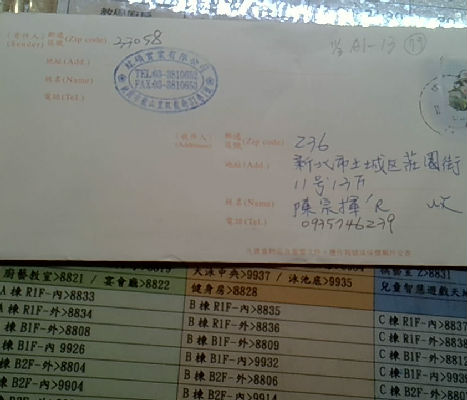 教學廚房
(寄件人) 郵遞區號 (Zip code) 23058
(Sender)
地址 (Add.)
姓名 (Name)
電話 (Tel.)
TEL:03-3810652
FAX:03-3810653
A1-13 (13)
(收件人) 郵遞區號 (Zip code) 236
(Addressee)
地址 (Add.) 新北市土城区莊園街
11号13F
姓名 (Name) 陳宗揮 'R
電話 (Tel.) 0935746239
廚藝教室>8821 / 宴會廳>8822
A棟 R1F-內>8833
A棟 R1F-外>8834
棟 B1F-外>8808
棟 B1F-內 9926
棟 B2F-外>8804
棟 B2F-內>9904
泳池中央>9937 / 泳池底>9935
健身房>8828
B棟 R1F-內>8835
B棟 R1F-外>8836
B棟 B1F-外>8809
B棟 B1F-內>9932
B棟 B2F-外>8806
B棟 B2F-內>9914
棋藝室 Z>8831
兒童智慧遊戲天
C棟 R1F-內>8837
C棟 R1F-外>883
C棟 B1F-外>881
C棟 B1F-內>993
C棟 B2F-外>880